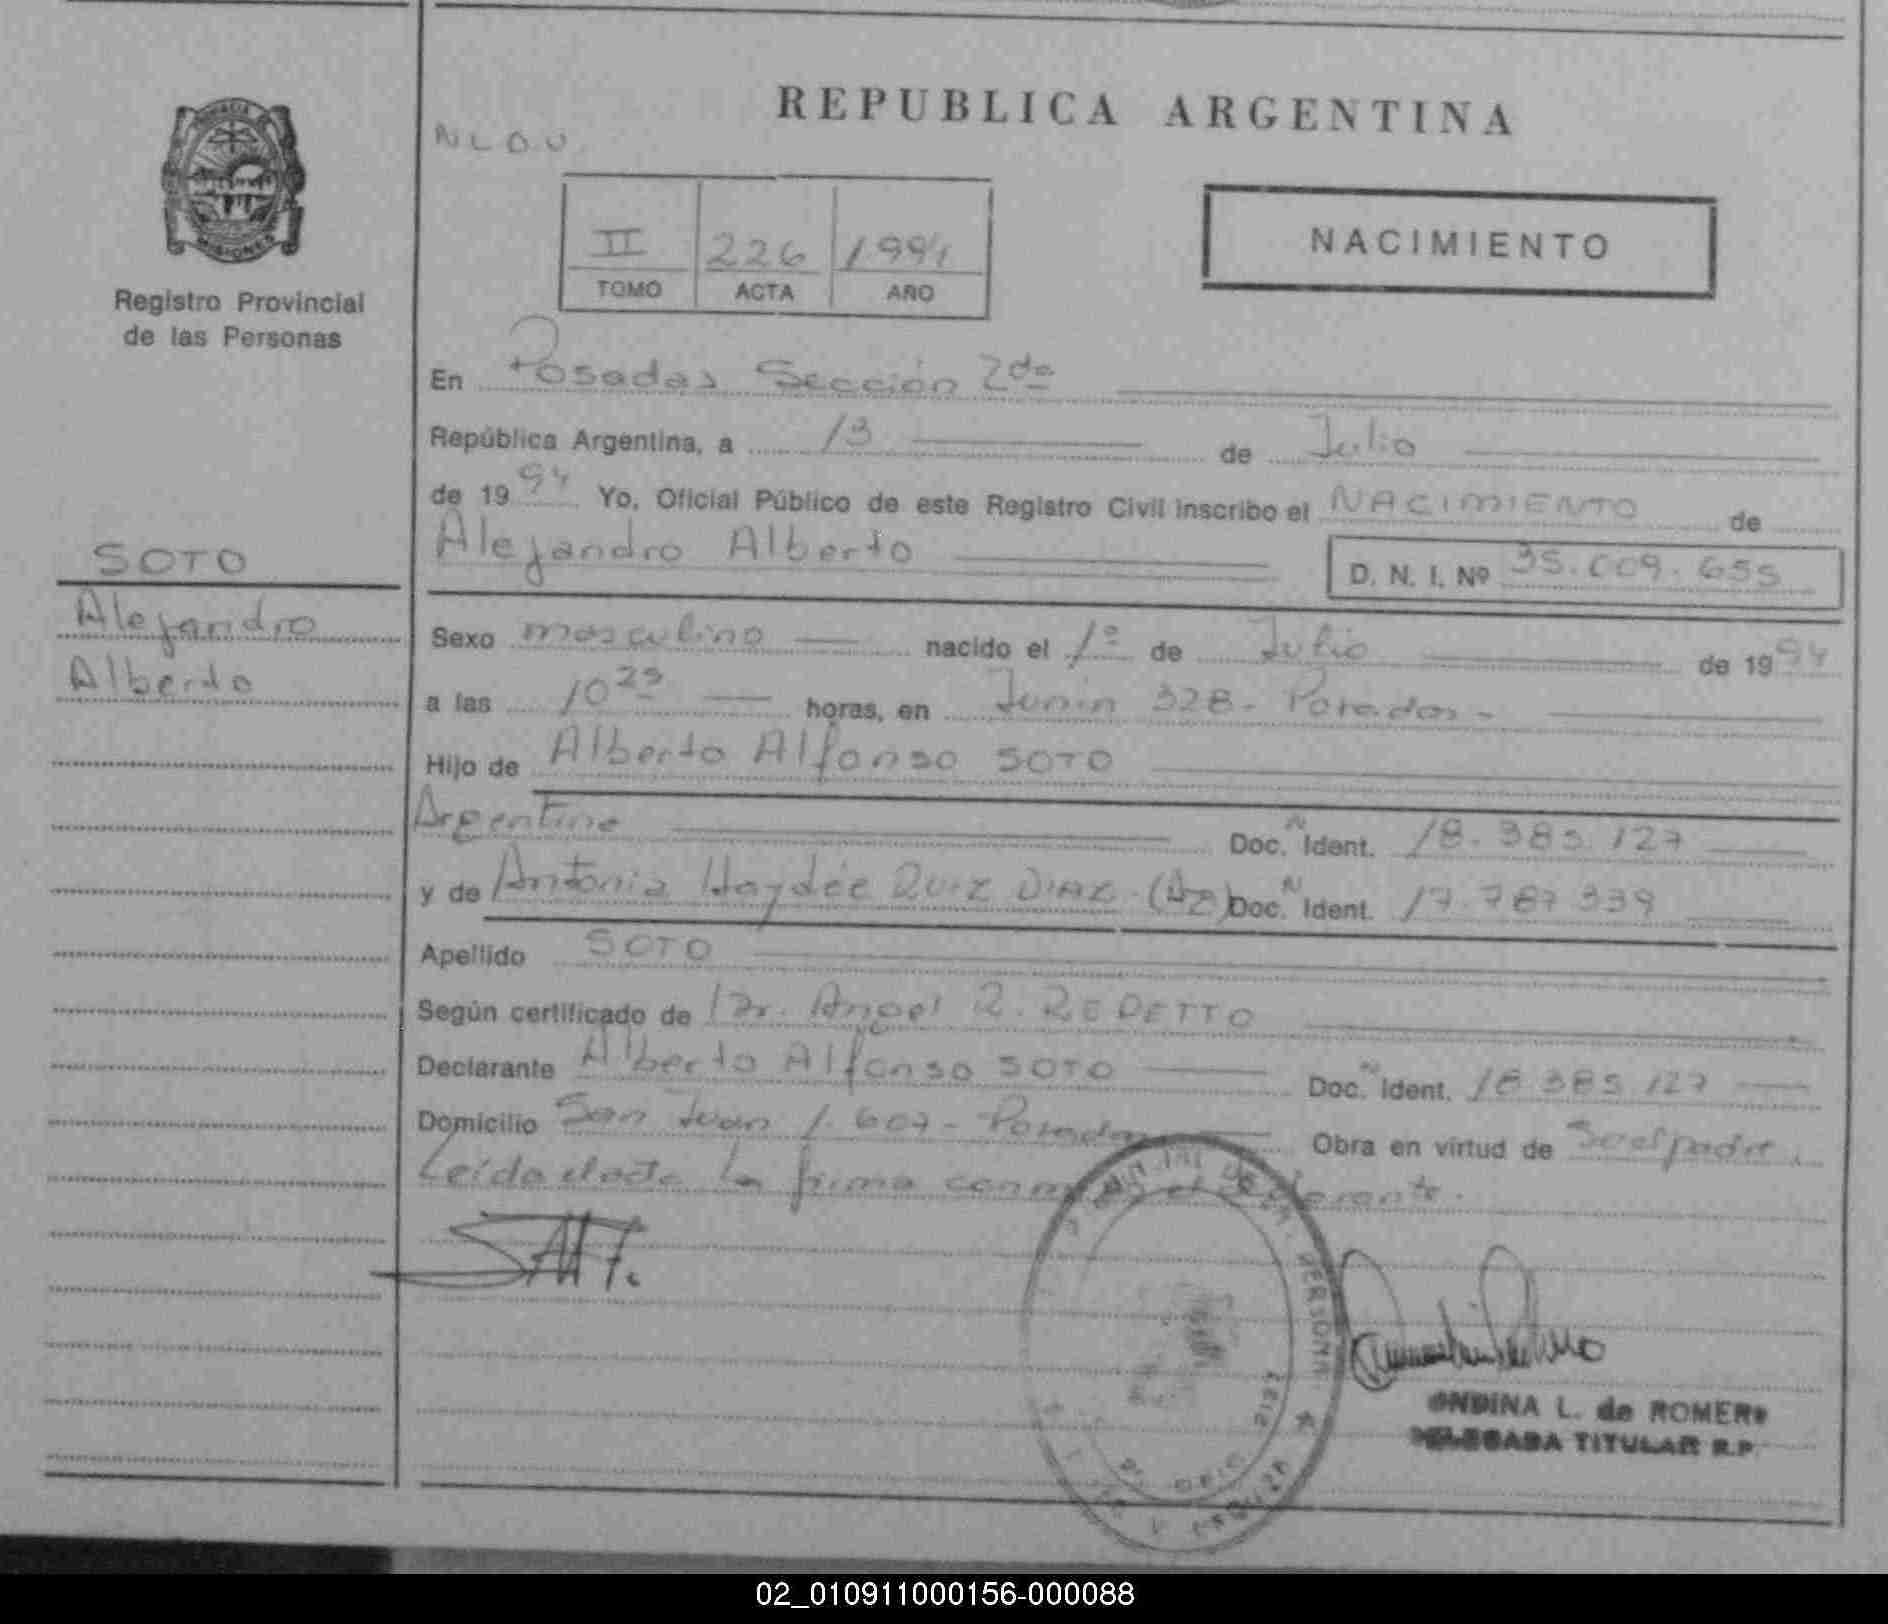 REPUBLICA ARGENTINA
NACIMIENTO
II 226 1994
TOMO ACTA AÑO
MISIONES
Registro Provincial
de las Personas
SOTO
Alejandro
Alberto
En Posadas Sección 2da
República Argentina, a 13 de Julio
de 1994 Yo, Oficial Público de este Registro Civil inscribo el NACIMIENTO de
Alejandro Alberto D. N. I. Nº 35.009.655
Sexo masculino nacido el 1º de Julio de 1994
a las 10 25 horas, en Junin 328 - Posadas -
Hijo de Alberto Alfonso SOTO
Argentino Doc. N Ident. 18.385.127
y de Antonia Haydée RUIZ DIAZ - Doc. N Ident. 17.787.339
Apellido SOTO
Según certificado de Dr. Angel R. REDETTO
Declarante Alberto Alfonso SOTO Doc. N Ident. 18.385.127
Domicilio San Juan 1.607 - Posadas Obra en virtud de Ser el padre.
Leida el acta la firma conmigo el declarante.
ONDINA L. de ROMERO
DELEGADA TITULAR R.P.
02_010911000156-000088